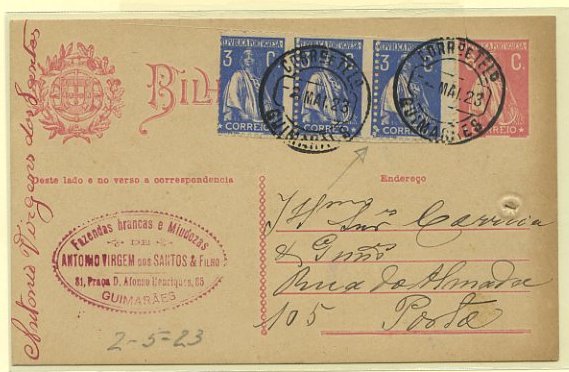 Antonio Virgem dos Santos
BILH
3 C.
REPUBLICA PORTUGUESA
CORREIO
REPUBLICA PORTUGUESA
CORREIO
3 C.
REPUBLICA PORTUGUESA
CORREIO
C.
CORREIO
MAI 23
GUIMARÃES
MAI 23
GUIMARÃES
Deste lado e no verso a correspondencia
Endereço
Fazendas brancas e Miudezas
DE
ANTONIO VIRGEM DOS SANTOS & FILHO
81, Praça D. Afonso Henriques, 85
GUIMARÃES
2-5-23
Snr Correia
&
Rua do Almada
105 Porto